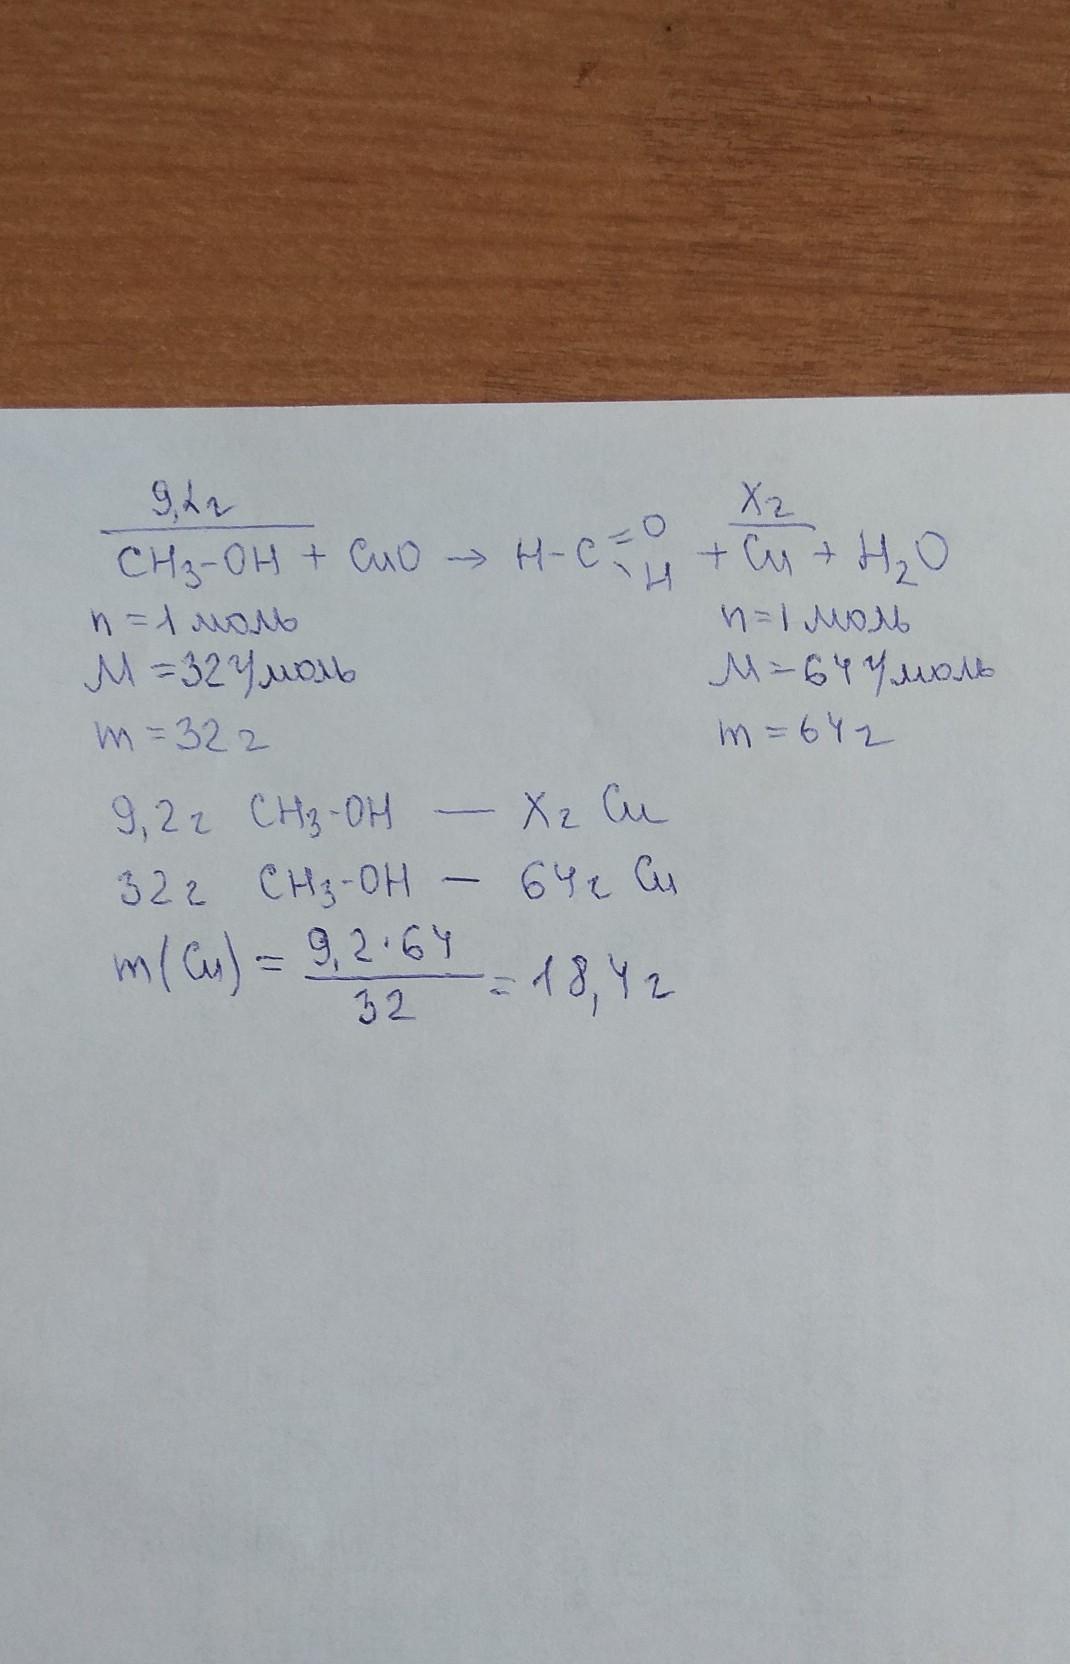 9,2г Xг
CH₃-OH + CuO → H-C=O-H + Cu + H₂O
n = 1 моль n = 1 моль
M = 32 г/моль M = 64 г/моль
m = 32 г m = 64 г
9,2 г CH₃-OH — Xг Cu
32 г CH₃-OH — 64 г Cu
m(Cu) = 9,2·64 / 32 = 18,4 г